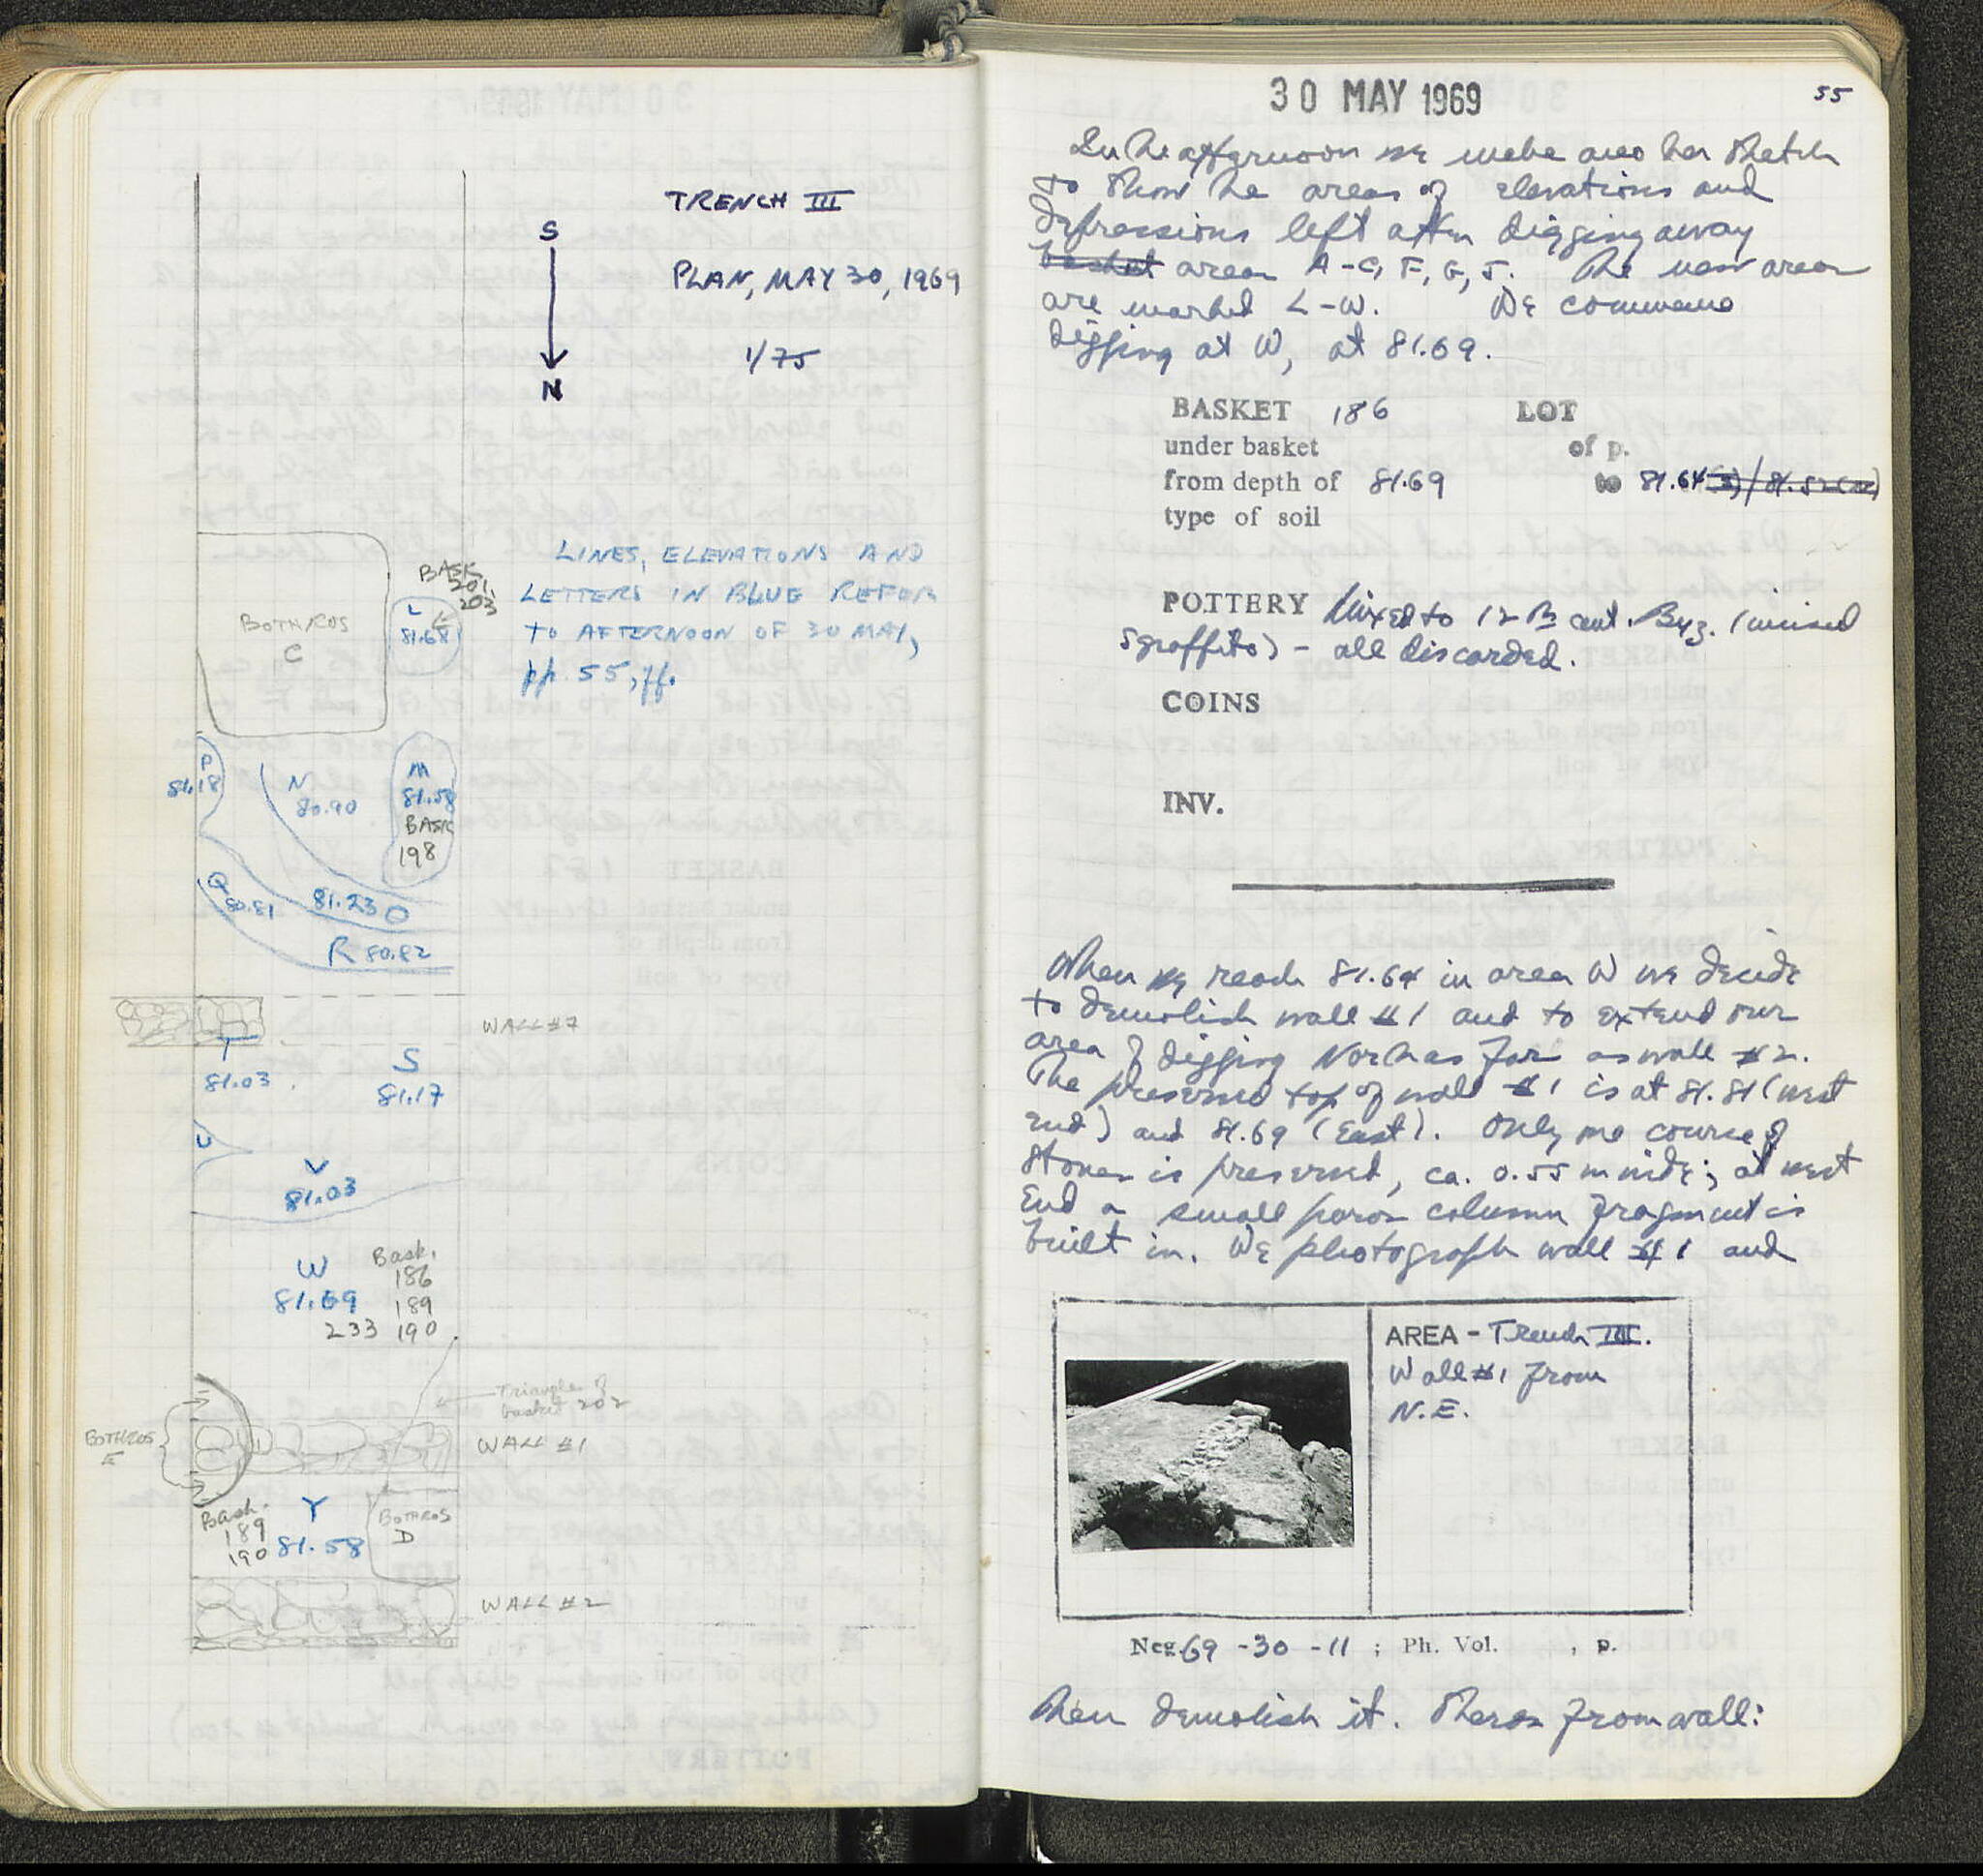 TRENCH III
S
PLAN, MAY 30, 1969
1/75
N
LINES, ELEVATIONS AND
LETTERS IN BLUE REFER
TO AFTERNOON OF 30 MAY,
pp. 55, ff.
BASK
201,
203
BOTHROS
C
L
81.68
P
81.18
N
80.90
M
81.58
BASK
198
Q
80.81
81.23 O
R 80.82
WALL #7
T
81.03
S
81.17
U
V
81.03
W
81.69
Bask.
186
189
233 190
Triangle of
basket 202
BOTHROS
E
WALL #1
Bask.
189
190
Y
81.58
BOTHROS
D
WALL #2
30 MAY 1969
55
In the afternoon we make another sketch
to show the areas of elevations and
depressions left after digging away
basket areas A-C, F, G, J. The new areas
are marked L-W. We commence
digging at W, at 81.69.
BASKET 186 LOT
under basket of p.
from depth of 81.69 to 81.64
type of soil
POTTERY Mixed to 12th cent. Byz. (incised
sgraffito) - all discarded.
COINS
INV.
When we reach 81.64 in area W we decide
to demolish wall #1 and to extend our
area of digging North as far as wall #2.
The preserved top of wall #1 is at 81.81 (west
end) and 81.69 (East). Only one course of
stones is preserved, ca. 0.55 m wide; at west
end a small poros column fragment is
built in. We photograph wall #1 and
AREA - Trench III.
Wall #1 from
N.E.
Neg. 69 - 30 - 11 ; Ph. Vol. , p.
then demolish it. Sherds from wall: